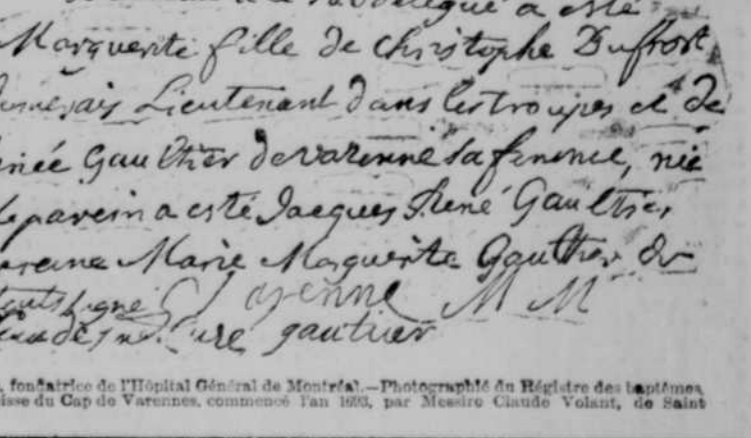 subdelegué a esté
Marguerite fille de christophe Dufrost
Lieutenant dans les troupes et de
Gaultier de varenne sa femme, née
le parein a esté Jacques René Gaultier
Marie Marguerite Gaultier du
M M
curé gautier
, fondatrice de l'Hôpital Général de Montréal.—Photographié du Régistre des baptêmes
isse du Cap de Varennes, commencé l'an 1693, par Messire Claude Volant, de Saint